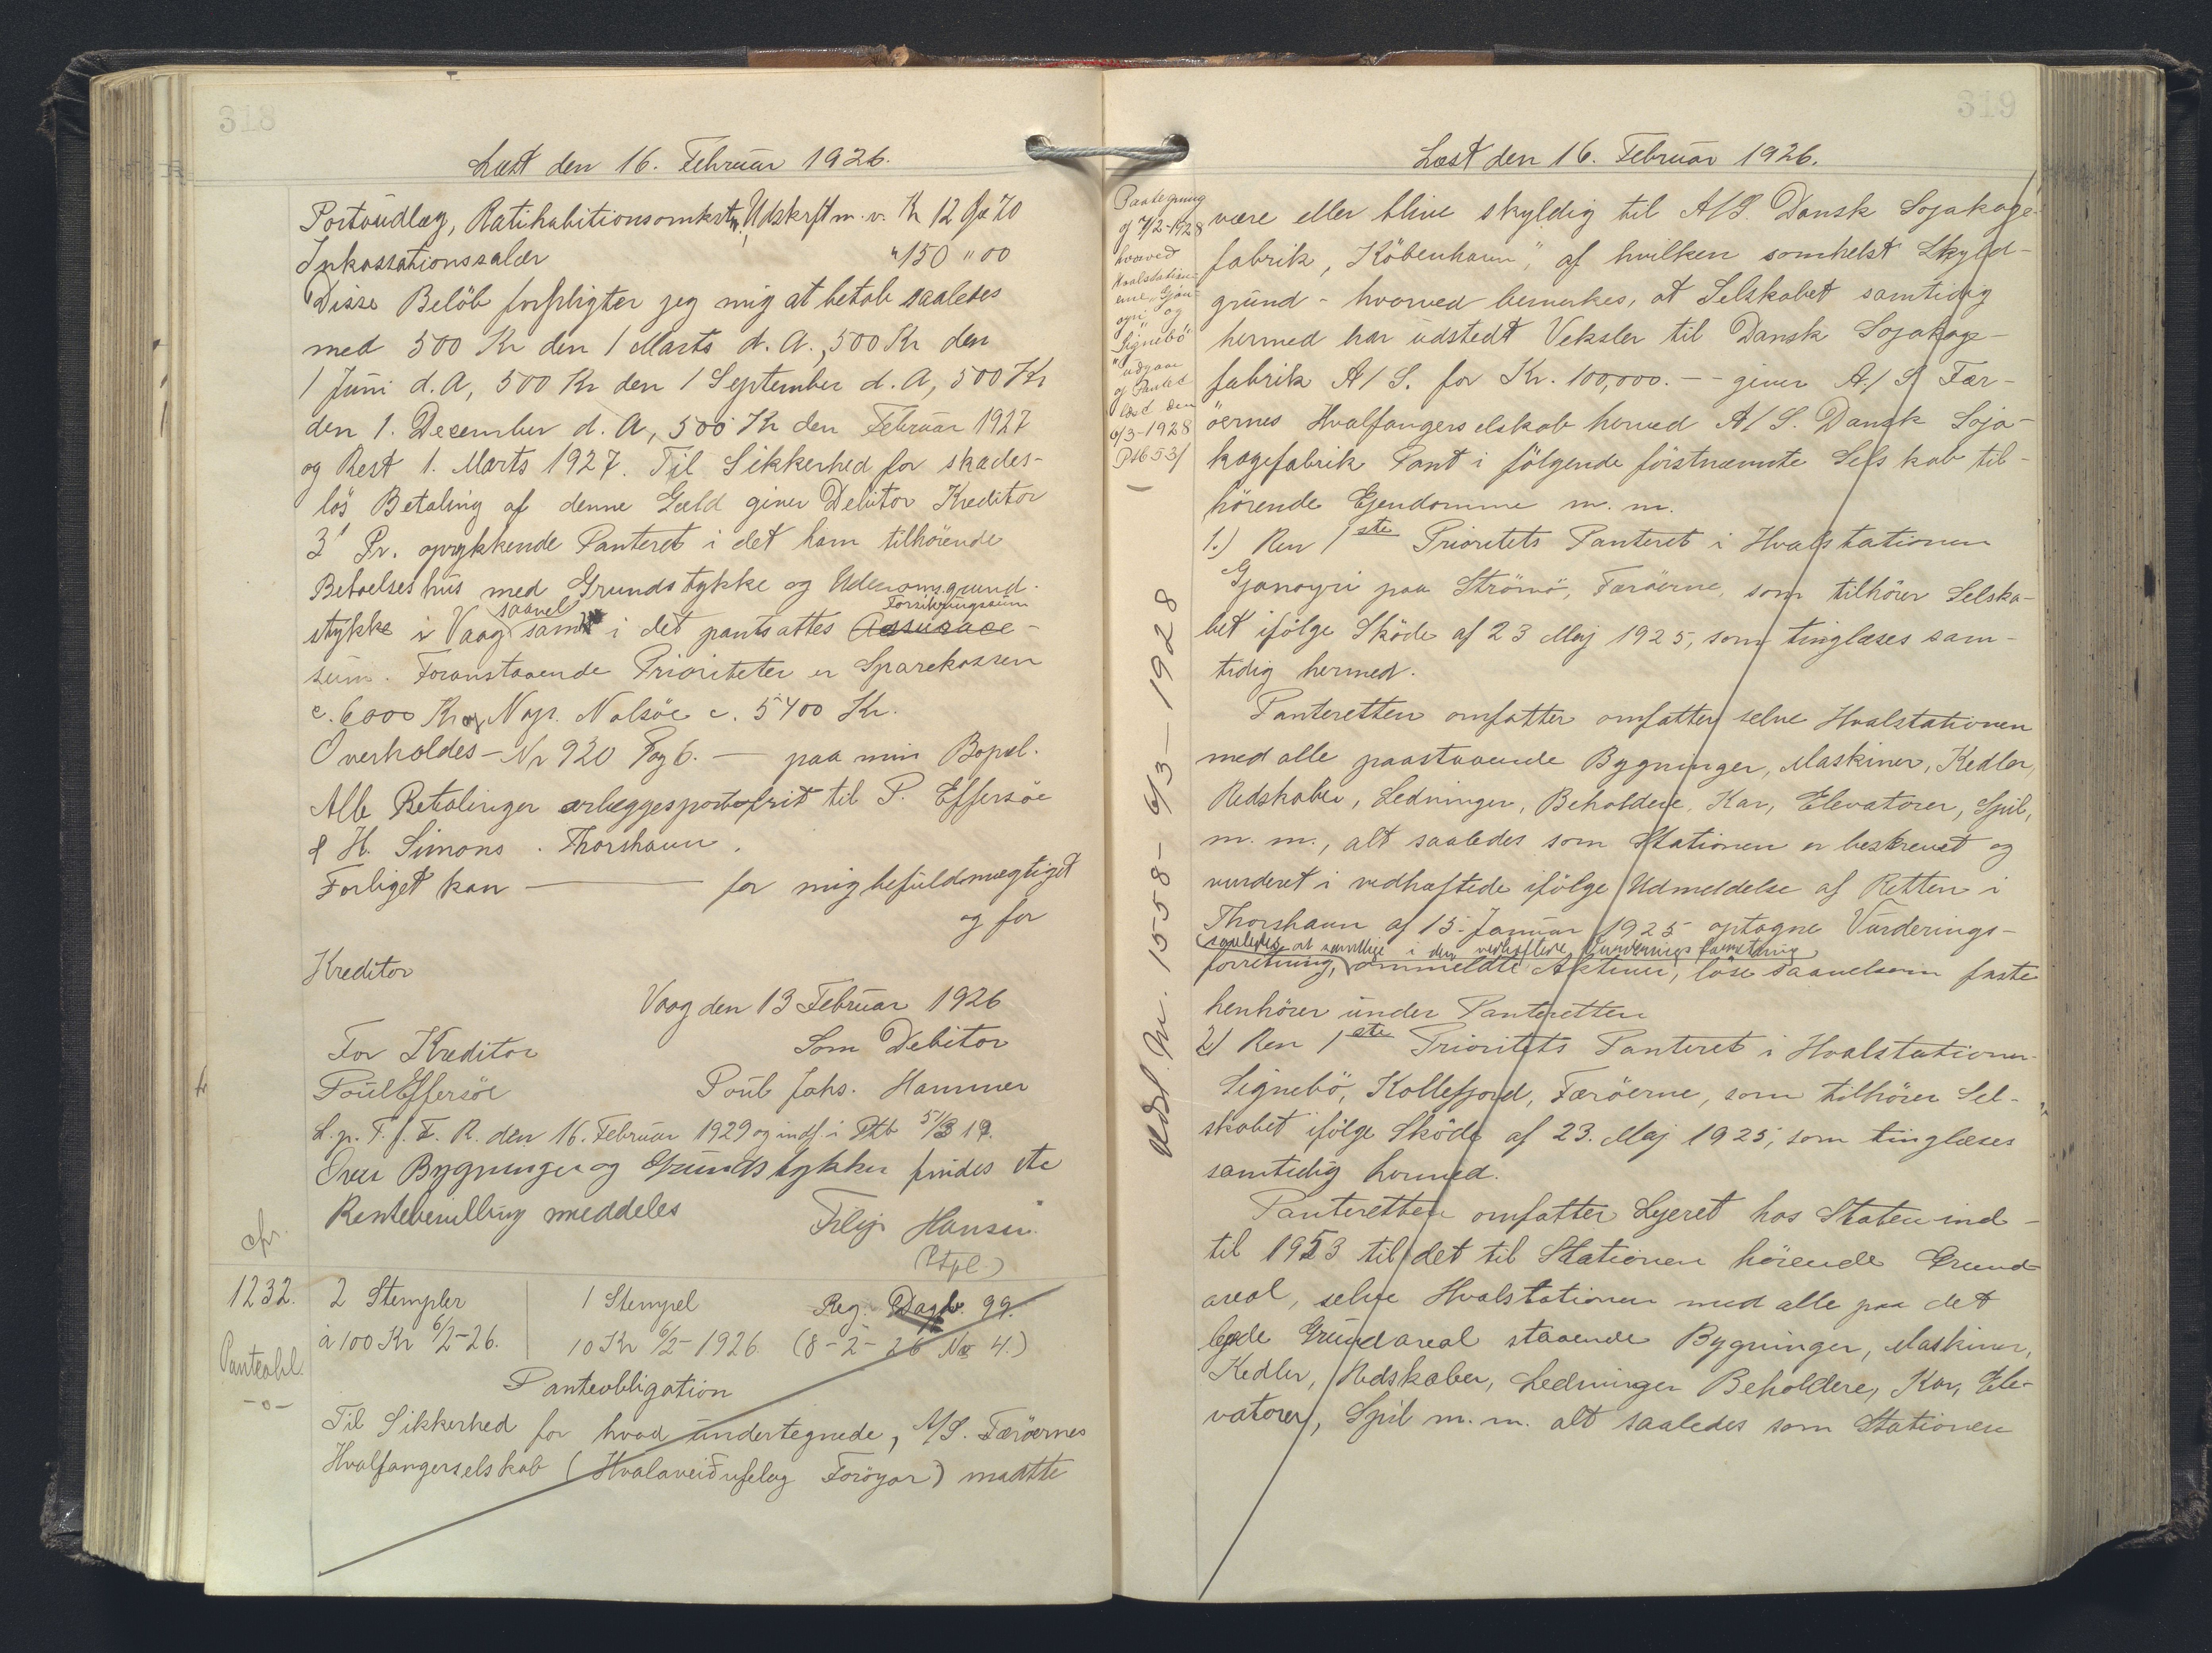 318
Læst den 16. Februar 1926.
Portoudlæg, Ratihabitionsomkstn, Udskrft m. v. Kr 12 Øre 70
Inkassationssalær " 150 " 00
Disse Beløb forpligter jeg mig at betale saaledes
med 500 Kr den 1 Marts d. A., 500 Kr den
1 Juni d. A, 500 Kr den 1 September d. A, 500 Kr
den 1. December d. A, 500 Kr den Februar 1927
og Rest 1. Marts 1927. Til Sikkerhed for skades-
løs Betaling af denne Gæld giver Debitor Kreditor
3' Pr. oprykkende Panteret i det ham tilhørende
Beboelseshus med Grundstykke og Udenomsgrund-
saavel Forsikringssum
stykke i Vaag samt i det pantsattes Assurace-
sum. Foranstaaende Prioriteter er Sparekassen
c. 6000 Kr og Nap. Nolsøe c. 5400 Kr.
Overholdes - Nr 920 Pag 6. — paa min Bopæl.
Alle Betalinger erlægges portofrit til P. Effersøe
& H. Simons. Thorshavn.
Forliget kan — for mig befuldmægtiget
og for
Kreditor
Vaag den 13 Februar 1926
For Kreditor Som Debitor
Poul Effersøe Poul Johs. Hammer
L. p. T. f. F. R. den 16. Februar 1929 og indf. i Ptb 5/3 17.
Over Bygninger og Grundstykker findes etc
Rentebevilling meddeles
Filip Hansen
(Stpl.)
cfr.
1232. 2 Stempler 1 Stempel Reg. Dagb. 99.
à 100 Kr 6/2-26. 10 Kr 6/2-1926. (8-2-26 No 4.)
Panteobl.
-o-
Panteobligation
Til Sikkerhed for hvad undertegnede, A/S. Færøernes
Hvalfangerselskab (Hvalaveiðufelag Føroyar) maatte
319
Læst den 16. Februar 1926.
Paategning
af 7/2-1928
hvorved
Hvalstation-
erne Gjan-
ogri og
Signebö
udgaar
af Pantet
læst den
6/3-1928
Pt6 53/
Udsl. Nr. 1558- 6/3-1928
være eller blive skyldig til A/S. Dansk Sojakage-
fabrik, København, af hvilken somhelst Skyld-
grund - hvorved bemærkes, at Selskabet samtidig
hermed har udstedt Veksler til Dansk Sojakage-
fabrik A/S. for Kr. 100,000.-- giver A/S Fær-
øernes Hvalfangerselskab herved A/S. Dansk Soja-
kagefabrik Pant i følgende førstnævnte Selskab til-
hørende Ejendomme m. m.
1.) Ren 1ste Prioritets Panteret i Hvalstationen
Gjanoyri paa Strömö, Færøerne, som tilhører Selska-
bet ifølge Skøde af 23 Maj 1925, som tinglæses sam-
tidig hermed.
Panteretten omfatter omfatter selve Hvalstationen
med alle paastaaende Bygninger, Maskiner, Kedler,
Redskaber, Ledninger, Beholdere, Kar, Elevatorer, Spil,
m. m., alt saaledes som Stationen er beskrevet og
vurderet i vedhæftede ifølge Udmeldelse af Retten i
Thorshavn af 15. Januar 1925 optagne Vurderings-
saaledes at samtlige i den vedhæftede Vurderings forretning
forretning, ommeldte Aktiver, løse saavelsom faste
henhører under Panteretten
2) Ren 1ste Prioritets Panteret i Hvalstationen
Signebö, Kollefjord, Færøerne, som tilhører Sel-
skabet ifølge Skøde af 23. Maj 1925, som tinglæses
samtidig hermed.
Panteretten omfatter Lejeret hos Staten ind-
til 1953 til det til Stationen hørende Grund-
areal, selve Hvalstationen med alle paa det
lejede Grundareal staaende Bygninger, Maskiner,
Kedler, Redskaber, Ledninger Beholdere, Kar, Ele-
vatorer, Spil m. m. alt saaledes som Stationen